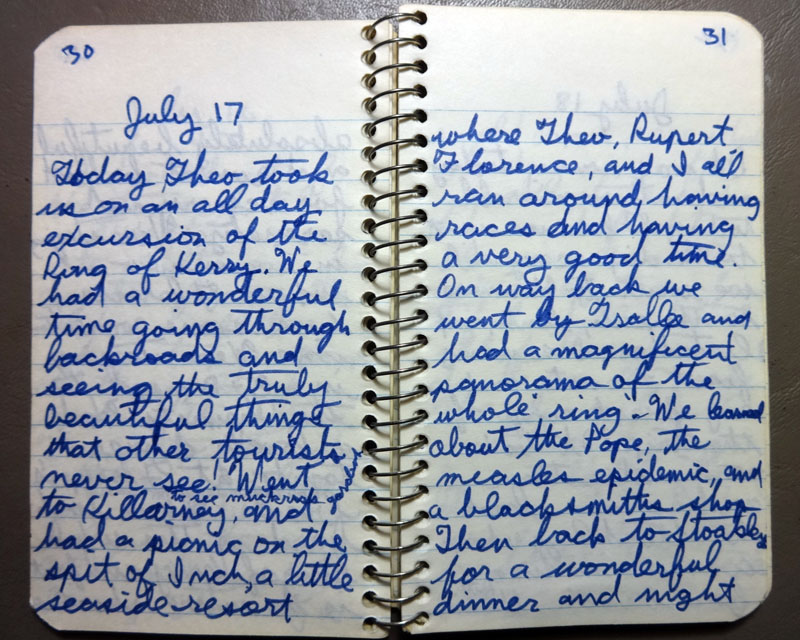 30
July 17
Today Theo took
us on an all day
excursion of the
Ring of Kerry. We
had a wonderful
time going through
backroads and
seeing the truly
beautiful things
that other tourists
never see! Went
to see muckross gardens
to Killarney, and
had a picnic on the
spit of Inch, a little
seaside resort
31
where Theo, Rupert,
Florence, and I all
ran around having
races and having
a very good time.
On way back we
went by Tralee and
had a magnificent
panorama of the
whole "ring". We learned
about the Pope, the
measles epidemic, and
a blacksmiths shop
Then back to
for a wonderful
dinner and night